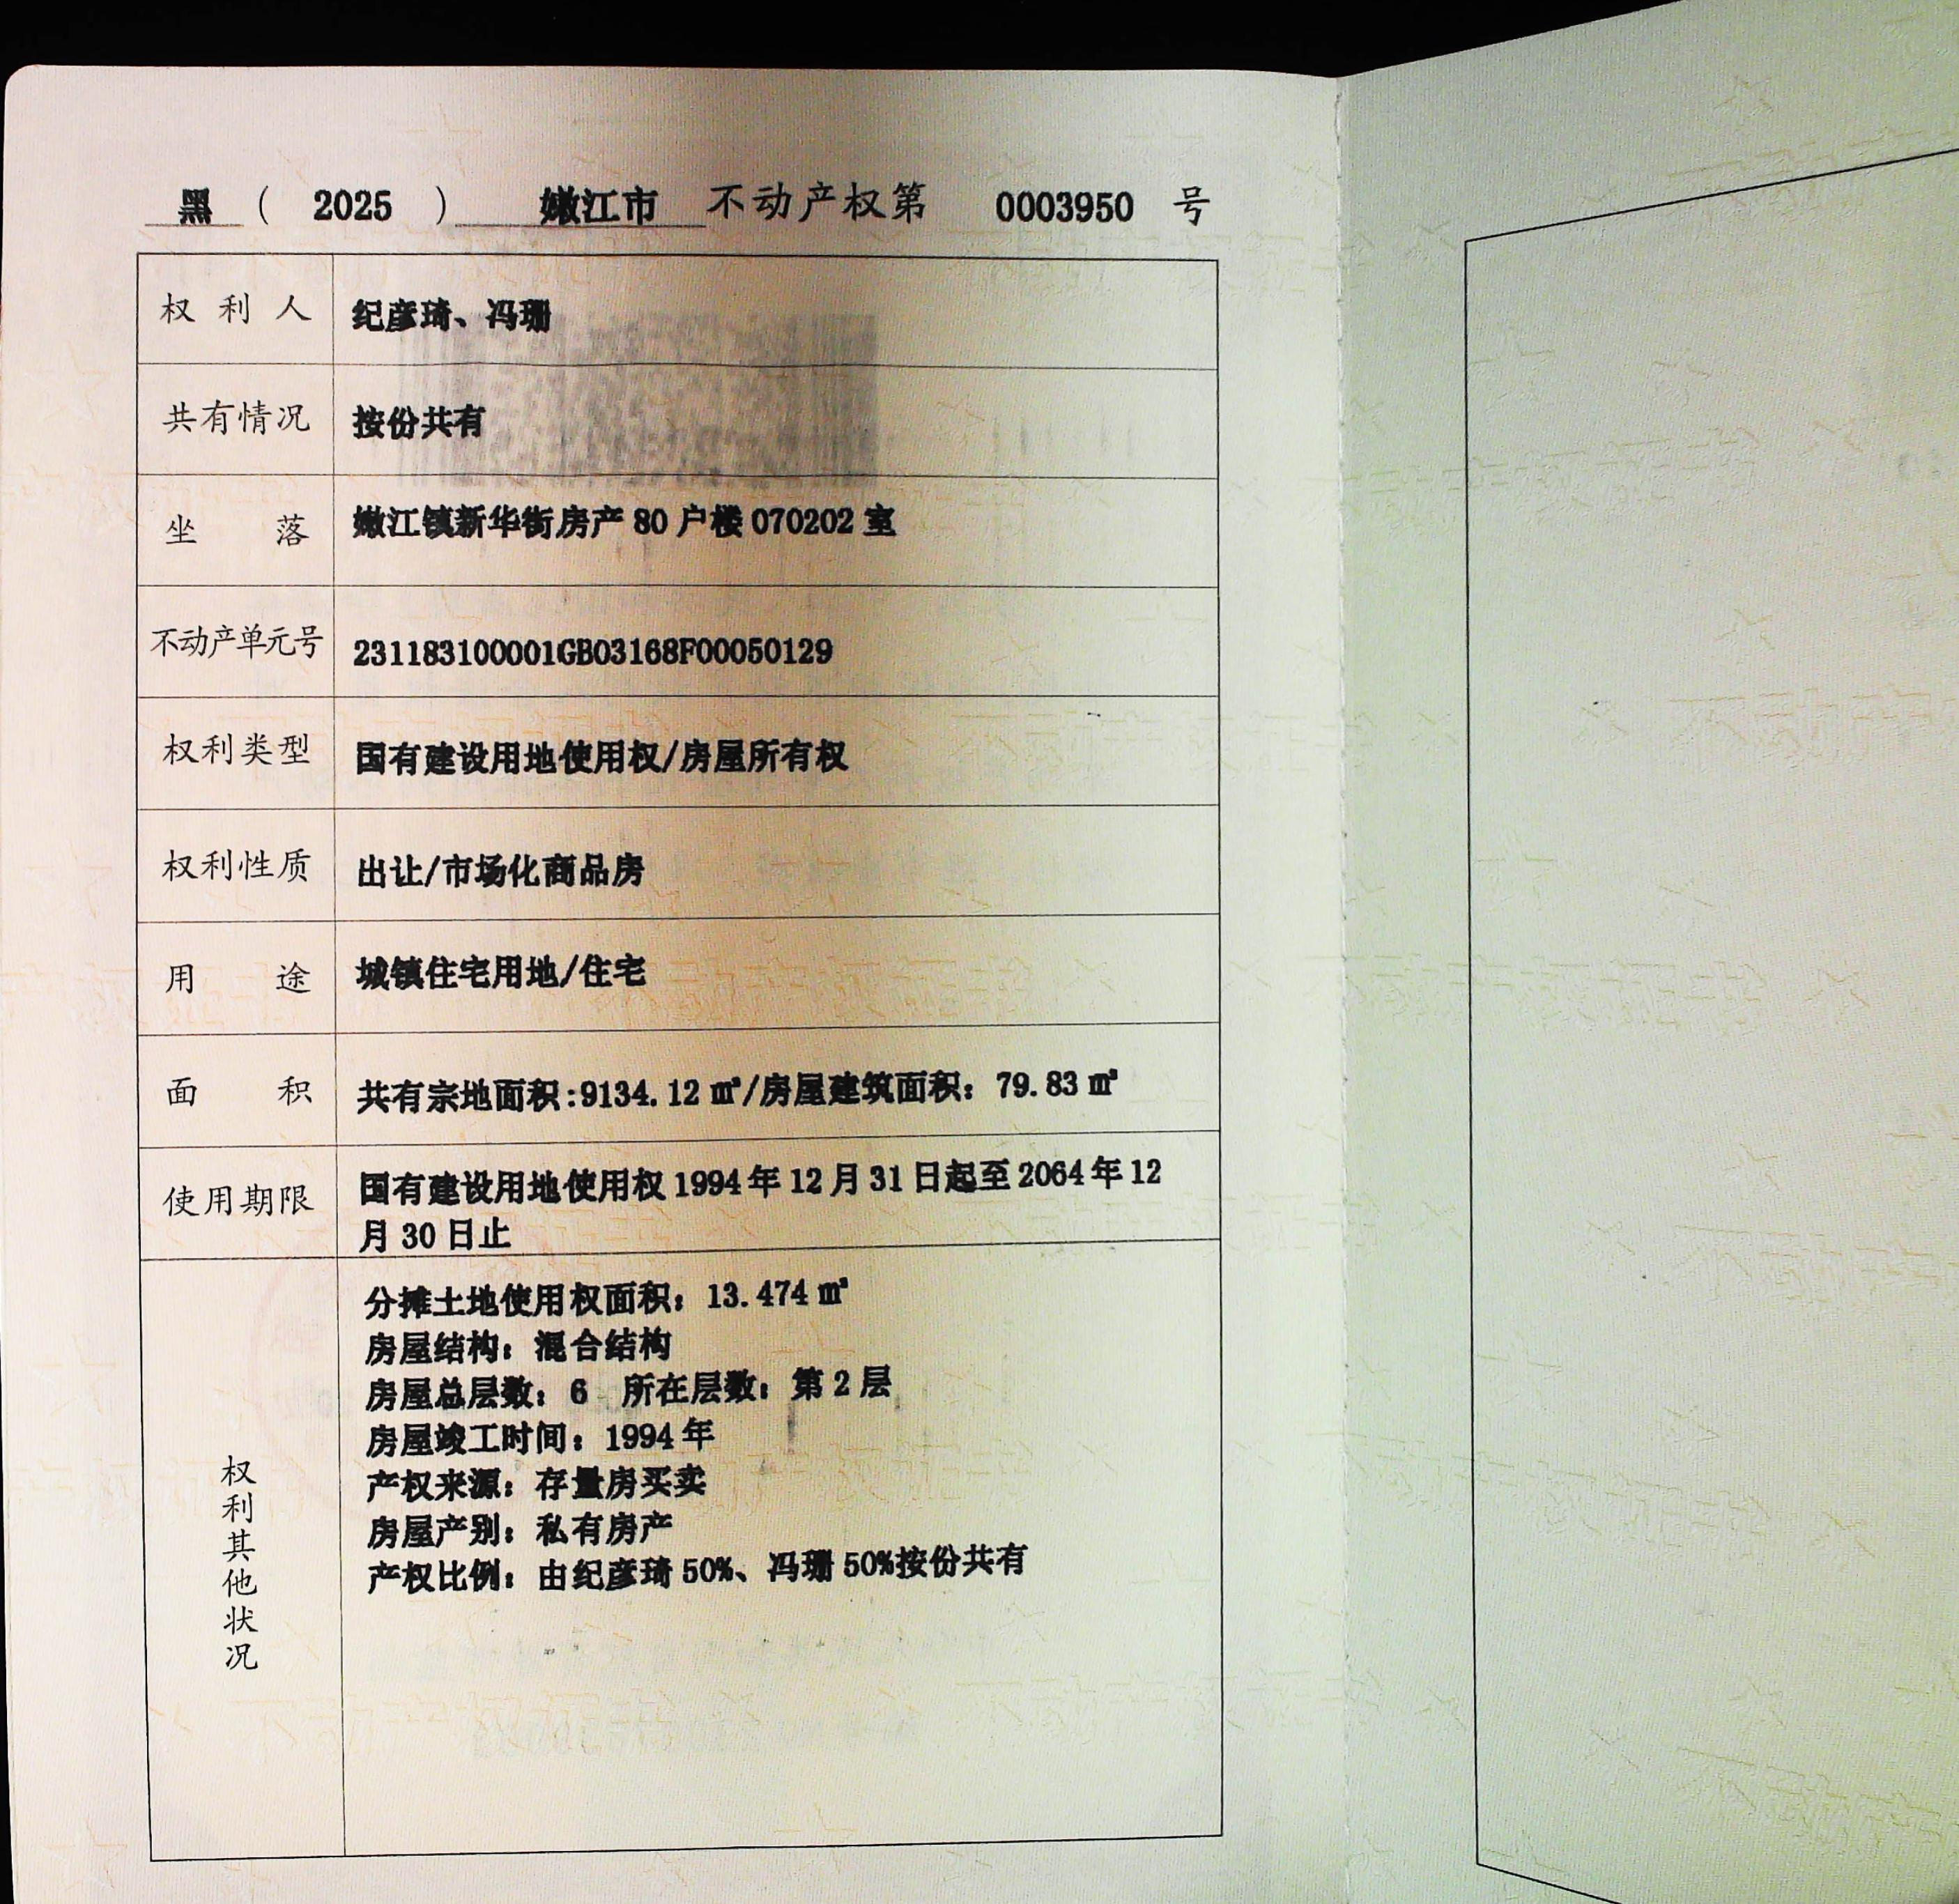 黑 ( 2025 ) 嫩江市 不动产权第 0003950 号
权利人 纪彦琦、冯珊
共有情况 按份共有
坐落 嫩江镇新华街房产 80 户楼 070202 室
不动产单元号 231183100001GB03168F00050129
权利类型 国有建设用地使用权/房屋所有权
权利性质 出让/市场化商品房
用途 城镇住宅用地/住宅
面积 共有宗地面积:9134.12 ㎡/房屋建筑面积：79.83 ㎡
使用期限 国有建设用地使用权 1994 年 12 月 31 日起至 2064 年 12
月 30 日止
权利其他状况
分摊土地使用权面积：13.474 ㎡
房屋结构：混合结构
房屋总层数：6 所在层数：第 2 层
房屋竣工时间：1994 年
产权来源：存量房买卖
房屋产别：私有房产
产权比例：由纪彦琦 50%、冯珊 50%按份共有